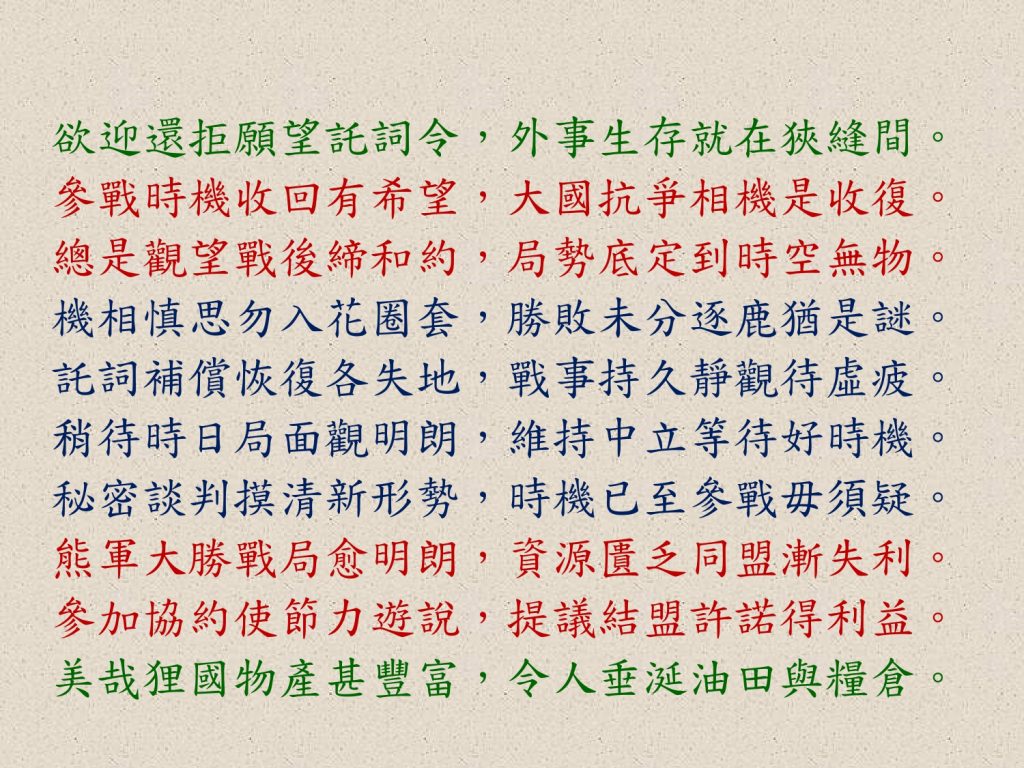 欲迎還拒願望託詞令，外事生存就在狹縫間。
參戰時機收回有希望，大國抗爭相機是收復。
總是觀望戰後締和約，局勢底定到時空無物。
機相慎思勿入花圈套，勝敗未分逐鹿猶是謎。
託詞補償恢復各失地，戰事持久靜觀待虛疲。
稍待時日局面觀明朗，維持中立等待好時機。
秘密談判摸清新形勢，時機已至參戰毋須疑。
熊軍大勝戰局愈明朗，資源匱乏同盟漸失利。
參加協約使節力遊說，提議結盟許諾得利益。
美哉狸國物產甚豐富，令人垂涎油田與糧倉。